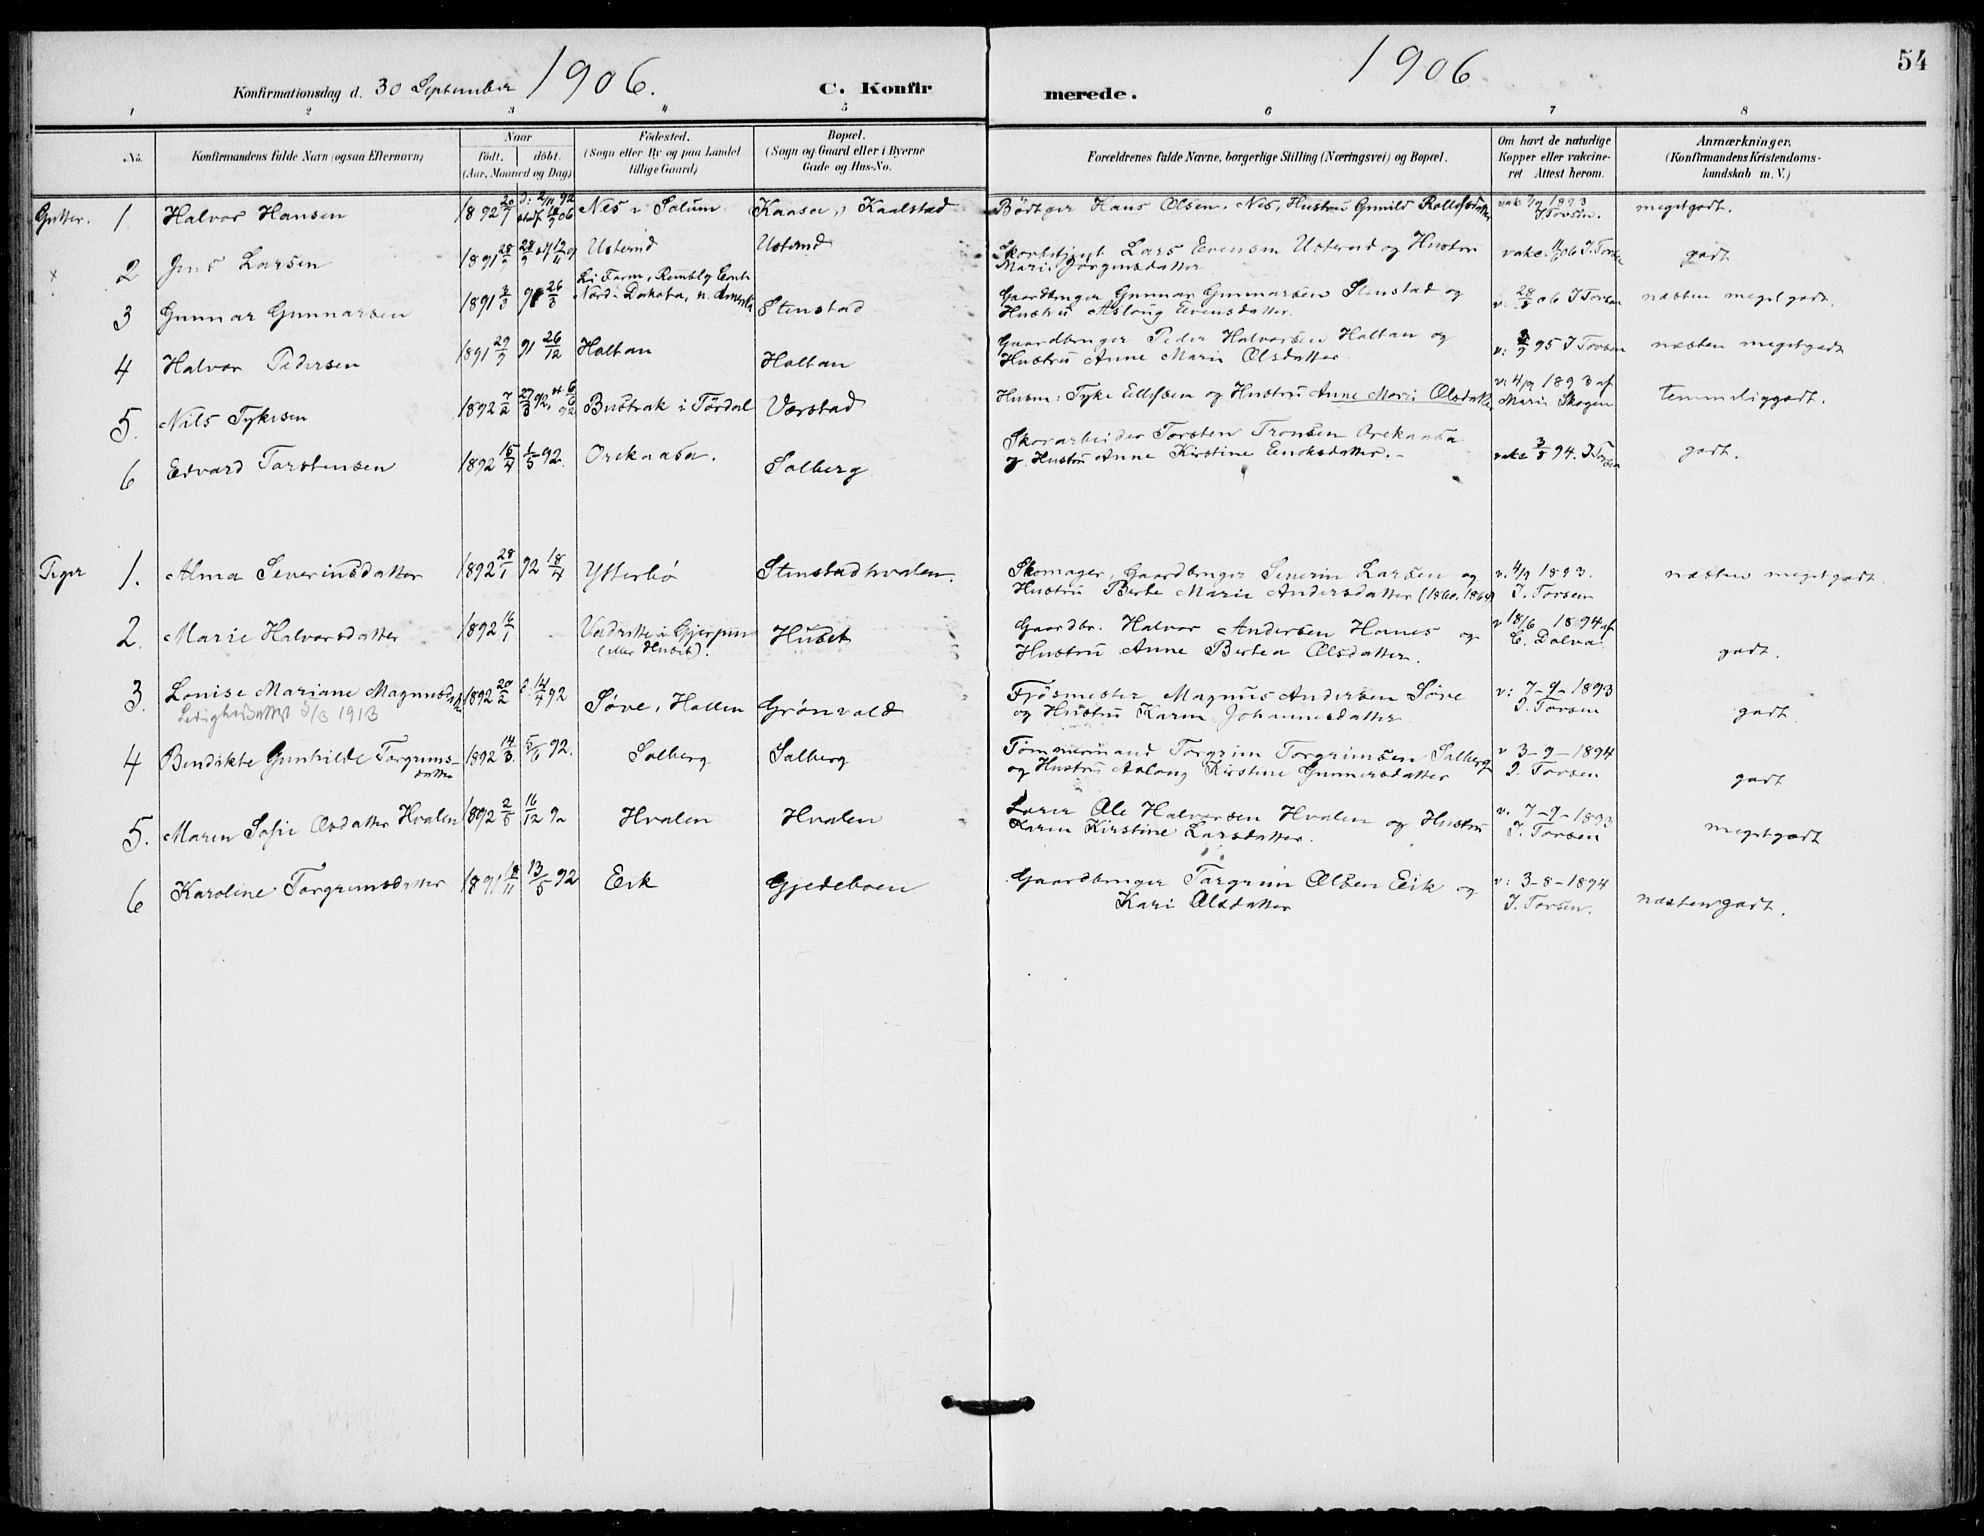 1906 54
Konfirmationsdag d. 30 September 1906. C. Konfir merede.
1 2 3 4 5 6 7 8
No. Konfirmandens fulde Navn (ogsaa Efternavn) Naar födt. döbt. (Aar, Maaned og Dag) Födested. (Sogn eller By og paa Landet tillige Gaard) Bopæl. (Sogn og Gaard eller i Byerne Gade og Hus-No. Forældrenes fulde Navne, borgerlige Stilling (Næringsvei) og Bopæl. Om havt de naturlige Kopper eller vakcineret. Attest herom. Anmærkninger. (Konfirmandens Kristendomskundskab m. V.)
Gutter. 1. Halvor Hansen 1892 Nes i Solum Kaasa, Kaalstad Bödtger Hans Olsen. Nes, Hustru Gunild Rollefsdatter 1893 J. Torsen. megetgodt.
x 2 Jens Larsen 1891 Usterud Usterud Lars Evensen Usterud og Hustru
Marie Jörgensdatter vakc. 06 J. Torsen godt
3 Gunnar Gunnarsen 1891 91 26/3 Li Farm, Nord-Dakota, n. Amerika Stenstad Gaardbruger Gunnar Gunnarsen Stenstad og
Hustru Aslaug Evensdatter. v: 06 J Torsen næsten megetgodt.
4 Halvor Pedersen 1891 29/9 91 26/12 Holtan Holtan Gaardbruger Peder Halvorsen Holtan og
Hustru Anne Marie Olsdatter. v: 95 J Torsen næsten megetgodt
5. Nils Tykesen 1892 7/2 Bustrak i Tördal Værstad Husm: Tyke Ellefsen og Hustru Anne Marie Olsdatter v: 4/9 1893 af
Marie Skogen temmeliggodt.
6 Edvard Torstensen 1892 15/4 1/5 92. Orekaasa. Solberg Skovarbeider Torsten Tronsen Orekaasa
og Hustru Anne Kirstine Enoksdatter. vakc 94. J. Torsen godt.
Piger 1. Alma Severinsdatter 1892 28/1 92 18/4 Ytterbö Stenstadhvalen. Skomager, Gaardbruger Severin Larsen og
Hustru Berte Marie Andersdatter (1860, 1864) v. 4/9 1893.
J. Torsen næsten megetgodt.
2. Marie Halvorsdatter 1892 16/1 i Gjerpen
(eller Huset). Huset Gaardbr. Halvor Andersen Hornes og
Hustru Anne Bertea Olsdatter. v 18/6 1894 af
C. Dolva. godt.
3. Louise Mariane Magnusdatter 1892 20/2 14/4 92 Söve, Hollen Grönvold Fjösmester Magnus Andersen Söve
Ledighedsattest 5/3 1913 og Hustru Karen Johannesdatter v: 7-9-1893
J. Torsen godt.
4 Bendikte Gunhilde Torgrims-
datter 1892 14/3 5/6 92. Solberg Solberg Tömmermand Torgrim Torgrimsen Solberg
og Hustru Aslaug Kirstine Gunnersdatter v 3-9-1894
J. Torsen godt
5. Maren Sofie Olsdatter Hvalen 1892 16/12 92 Hvalen Hvalen Lærer Ole Halvorsen Hvalen og Hustru
Karen Kirstine Larsdatter. v. 7-9-1893
J. Torsen megetgodt
6 Karoline Torgrimsdatter 1891 13/5 92 Eik Gjedeboen Gaardbruger Torgrim Olsen Eik og
Kari Olsdatter v: 3-8-1894
J. Torsen. næstengodt.